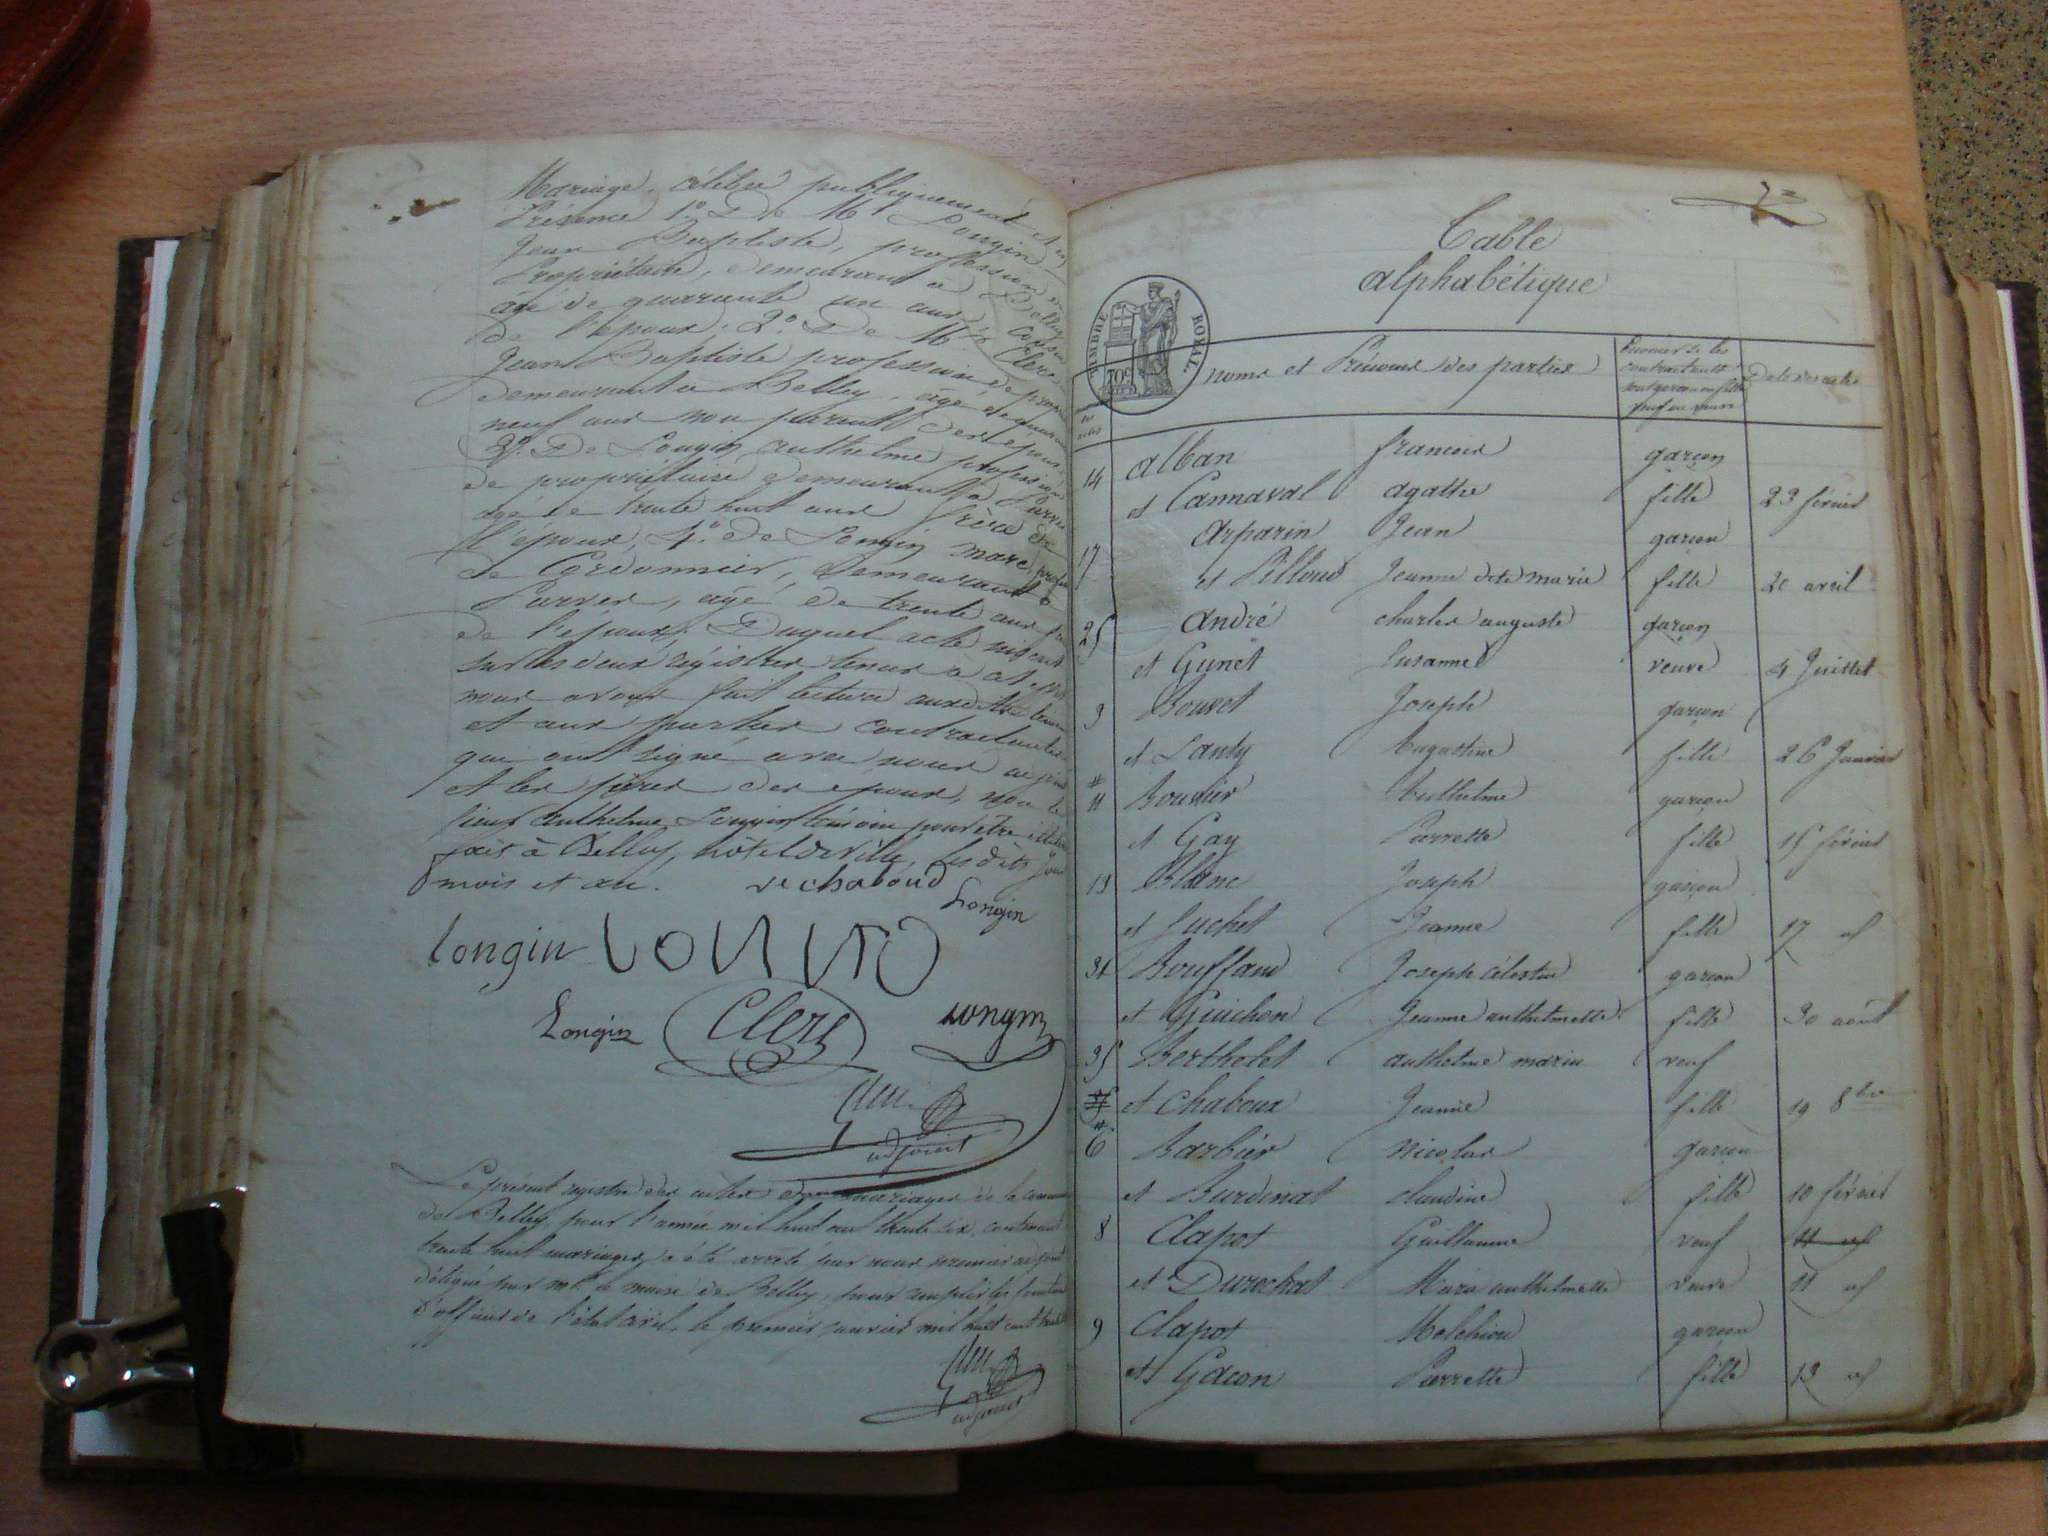 Mariage, célébré publiquement et en
Présence 1.° De M. Longin
Jean Baptiste, profession de
Propriétaire, demeurant à Belley
agé de quarante un ans, cousin
de l'époux. 2.° De M. Clerc
Jean Baptiste profession de
demeurant à Belley, agé de quarante
neuf ans non parent des époux
3.° De Longin anthelme profession
de propriétaire demeurant à Parves
agé de trente huit ans frère de
l'époux, 4.° de Longin Marc, profession
de Cordonnier, demeurant à
Parves, agé de trente ans
de l'époux. Duquel acte inscrit
sur les deux régistres tenus à cet effet
nous avons fait lecture auxdits témoins
et aux parties contractantes
qui ont signé avec nous adjoint
et les pères des époux, non le
sieur anthelme Longin témoin pour être illétéré
fait à Belley, hôtel de ville, lesdits jour
mois et an. vechaboud
Longin
Longin
Longin Clerc Longin
adjoint
Le présent registre des actes de mariages de la commune
de Belley, pour l'année mil huit cent trente six, contenant
trente huit mariages, a été arrêté par nous premier adjoint
délégué par Mr le maire de Belley, pour remplir les fonctions
d'officier de l'état civil, le premier janvier mil huit cent trente
adjoint
Table
alphabétique
TIMBRE ROYAL
70c
noms et Prénoms des parties Enoncer si les contractants sont garçon ou fille veuf ou veuve Date des actes
14 Alban francois garçon
et Cannaval agathe fille 23 février
17 Arparin Jean garçon
et Pilloud Jeanne dite marie fille 20 avril
25 André charles auguste garçon
et Gunet Susanne veuve 4 Juillet
3 Bouvet Joseph garçon
et Landy Augustine fille 26 Janvier
11 Bouvier Anthelme garçon
et Gay Pierrette fille 15 février
13 Blanc Joseph garçon
et Juchet Jeanne fille 17 id
31 Bouffard Joseph célestin garçon
et Guichon Jeanne anthelmette fille 30 août
35 Berthelet anthelme marie veuf
et chaboux Jeanne fille 19 8bre
6 Barbier Nicolas garçon
et Burdinat claudine fille 10 février
8 Clapot Guillaume veuf 11 id
et Durochat Marie anthelmette veuve 11 id
9 Clapot Melchior garçon
et Gacon Pierrette fille 13 id